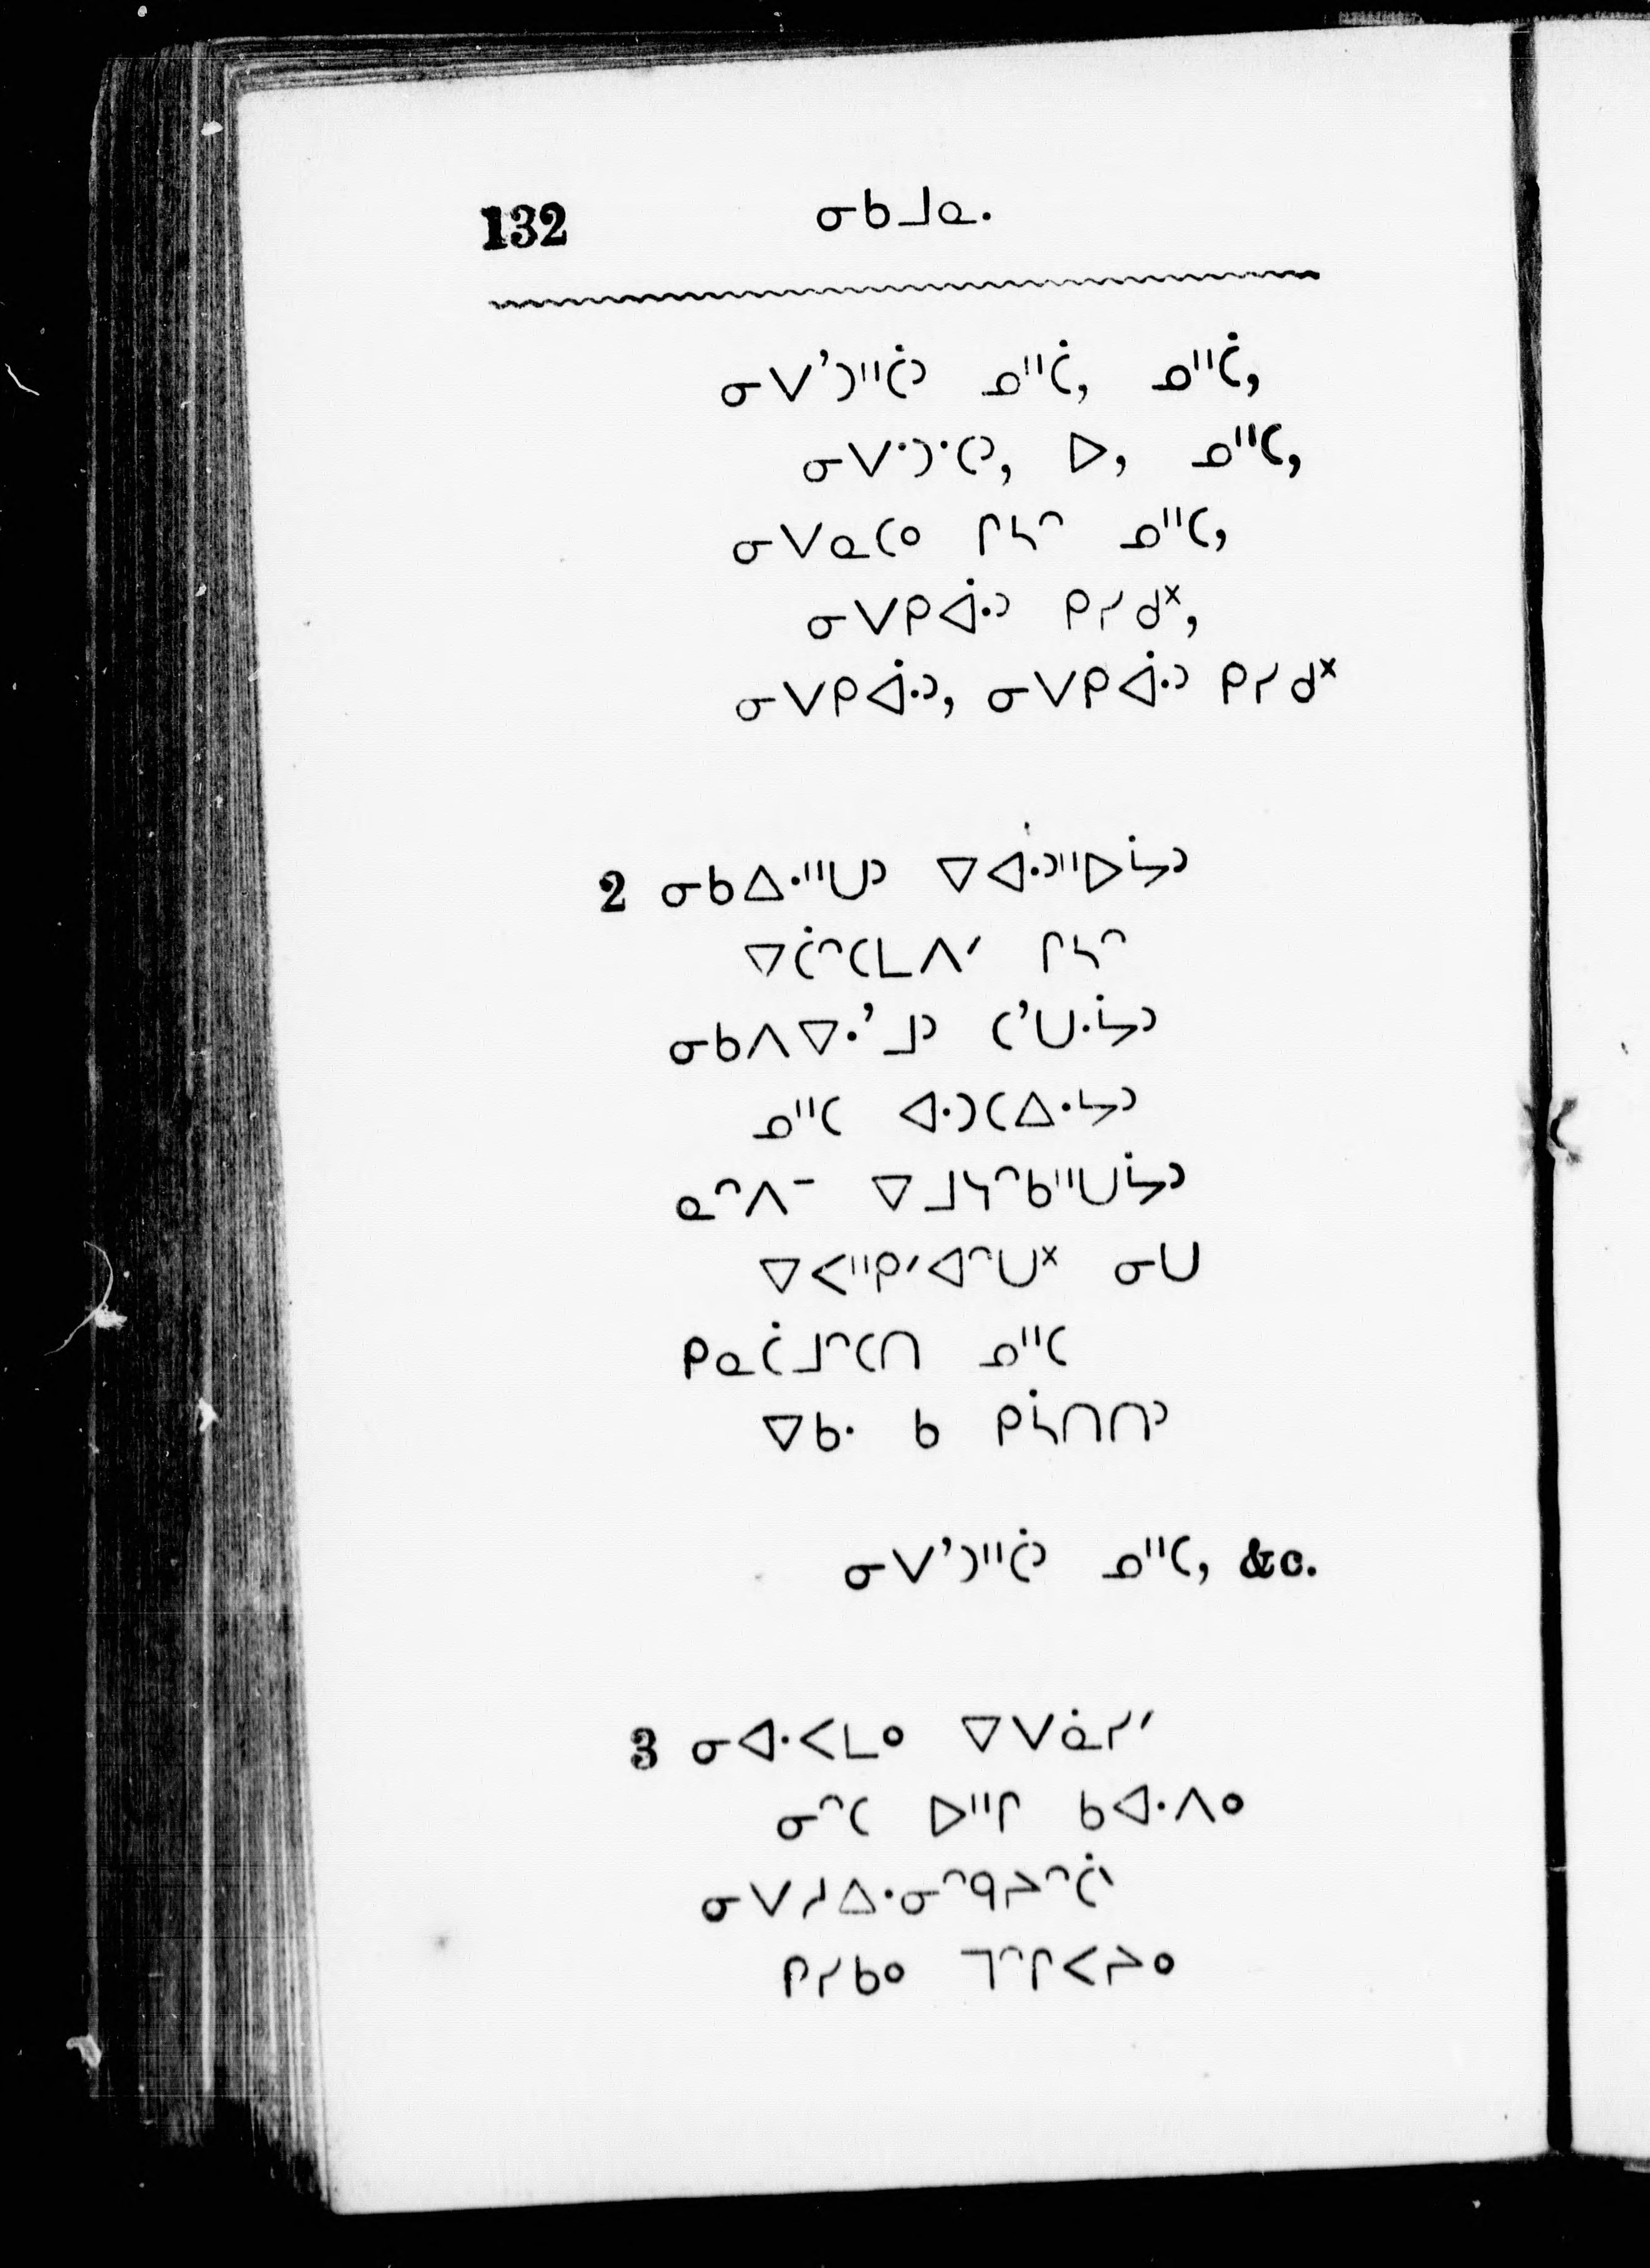 132 ᓂᑲᒧᓇ.
ᓂᐯᐨᑐᐦᑖᐣ ᓄᐦᑖ, ᓄᐦᑖ,
ᓂᐯᐧᑐᐧᑕᐣ, ᐅ, ᓄᐦᑕ,
ᓂᐯᓇᑕᐤ ᒋᓴᐢ ᓄᐦᑕ,
ᓂᐯᑭᐋᐧᐣ ᑭᓯᑯᕽ,
ᓂᐯᑭᐋᐧᐣ, ᓂᐯᑭᐋᐧᐣ ᑭᓯᑯᕽ
2 ᓂᑲᐃᐧᐦᑌᐣ ᐁᐊᐧᐣᐦᐅᔮᐣ
ᐁᑖᐢᑕᒪᐱᐟ ᒋᓴᐢ
ᓂᑲᐱᐁᐧᐨᒧᐣ ᑕᐨᑌᐧᔮᐣ
ᓄᐦᑕ ᐊᐧᑐᑕᐃᐧᔭᐣ
ᓇᐢᐱᐨ ᐁᒧᓴᐢᑲᐦᑌᔮᐣ
ᐁᐸᐦᑭᐟᐊᐢᑌᕽ ᓂᑌ
ᑭᓇᑖᒧᐢᑕᑎ ᓄᐦᑕ
ᐁᑲᐧ ᑲ ᑭᓵᑎᑎᐣ
ᓂᐯᐨᑐᐦᑖᐣ ᓄᐦᑕ, &c.
3 ᓂᐊᐧᐸᒪᐤ ᐁᐯᓈᓯᐟ
ᓂᐢᑕ ᐅᐦᒋ ᑲᐊᐧᐱᐤ
ᓂᐯᓱᐃᐧᓂᐢᑫᔨᐢᑖᐠ
ᑭᓯᑲᐤ ᒣᐢᒋᐸᔨᐤ